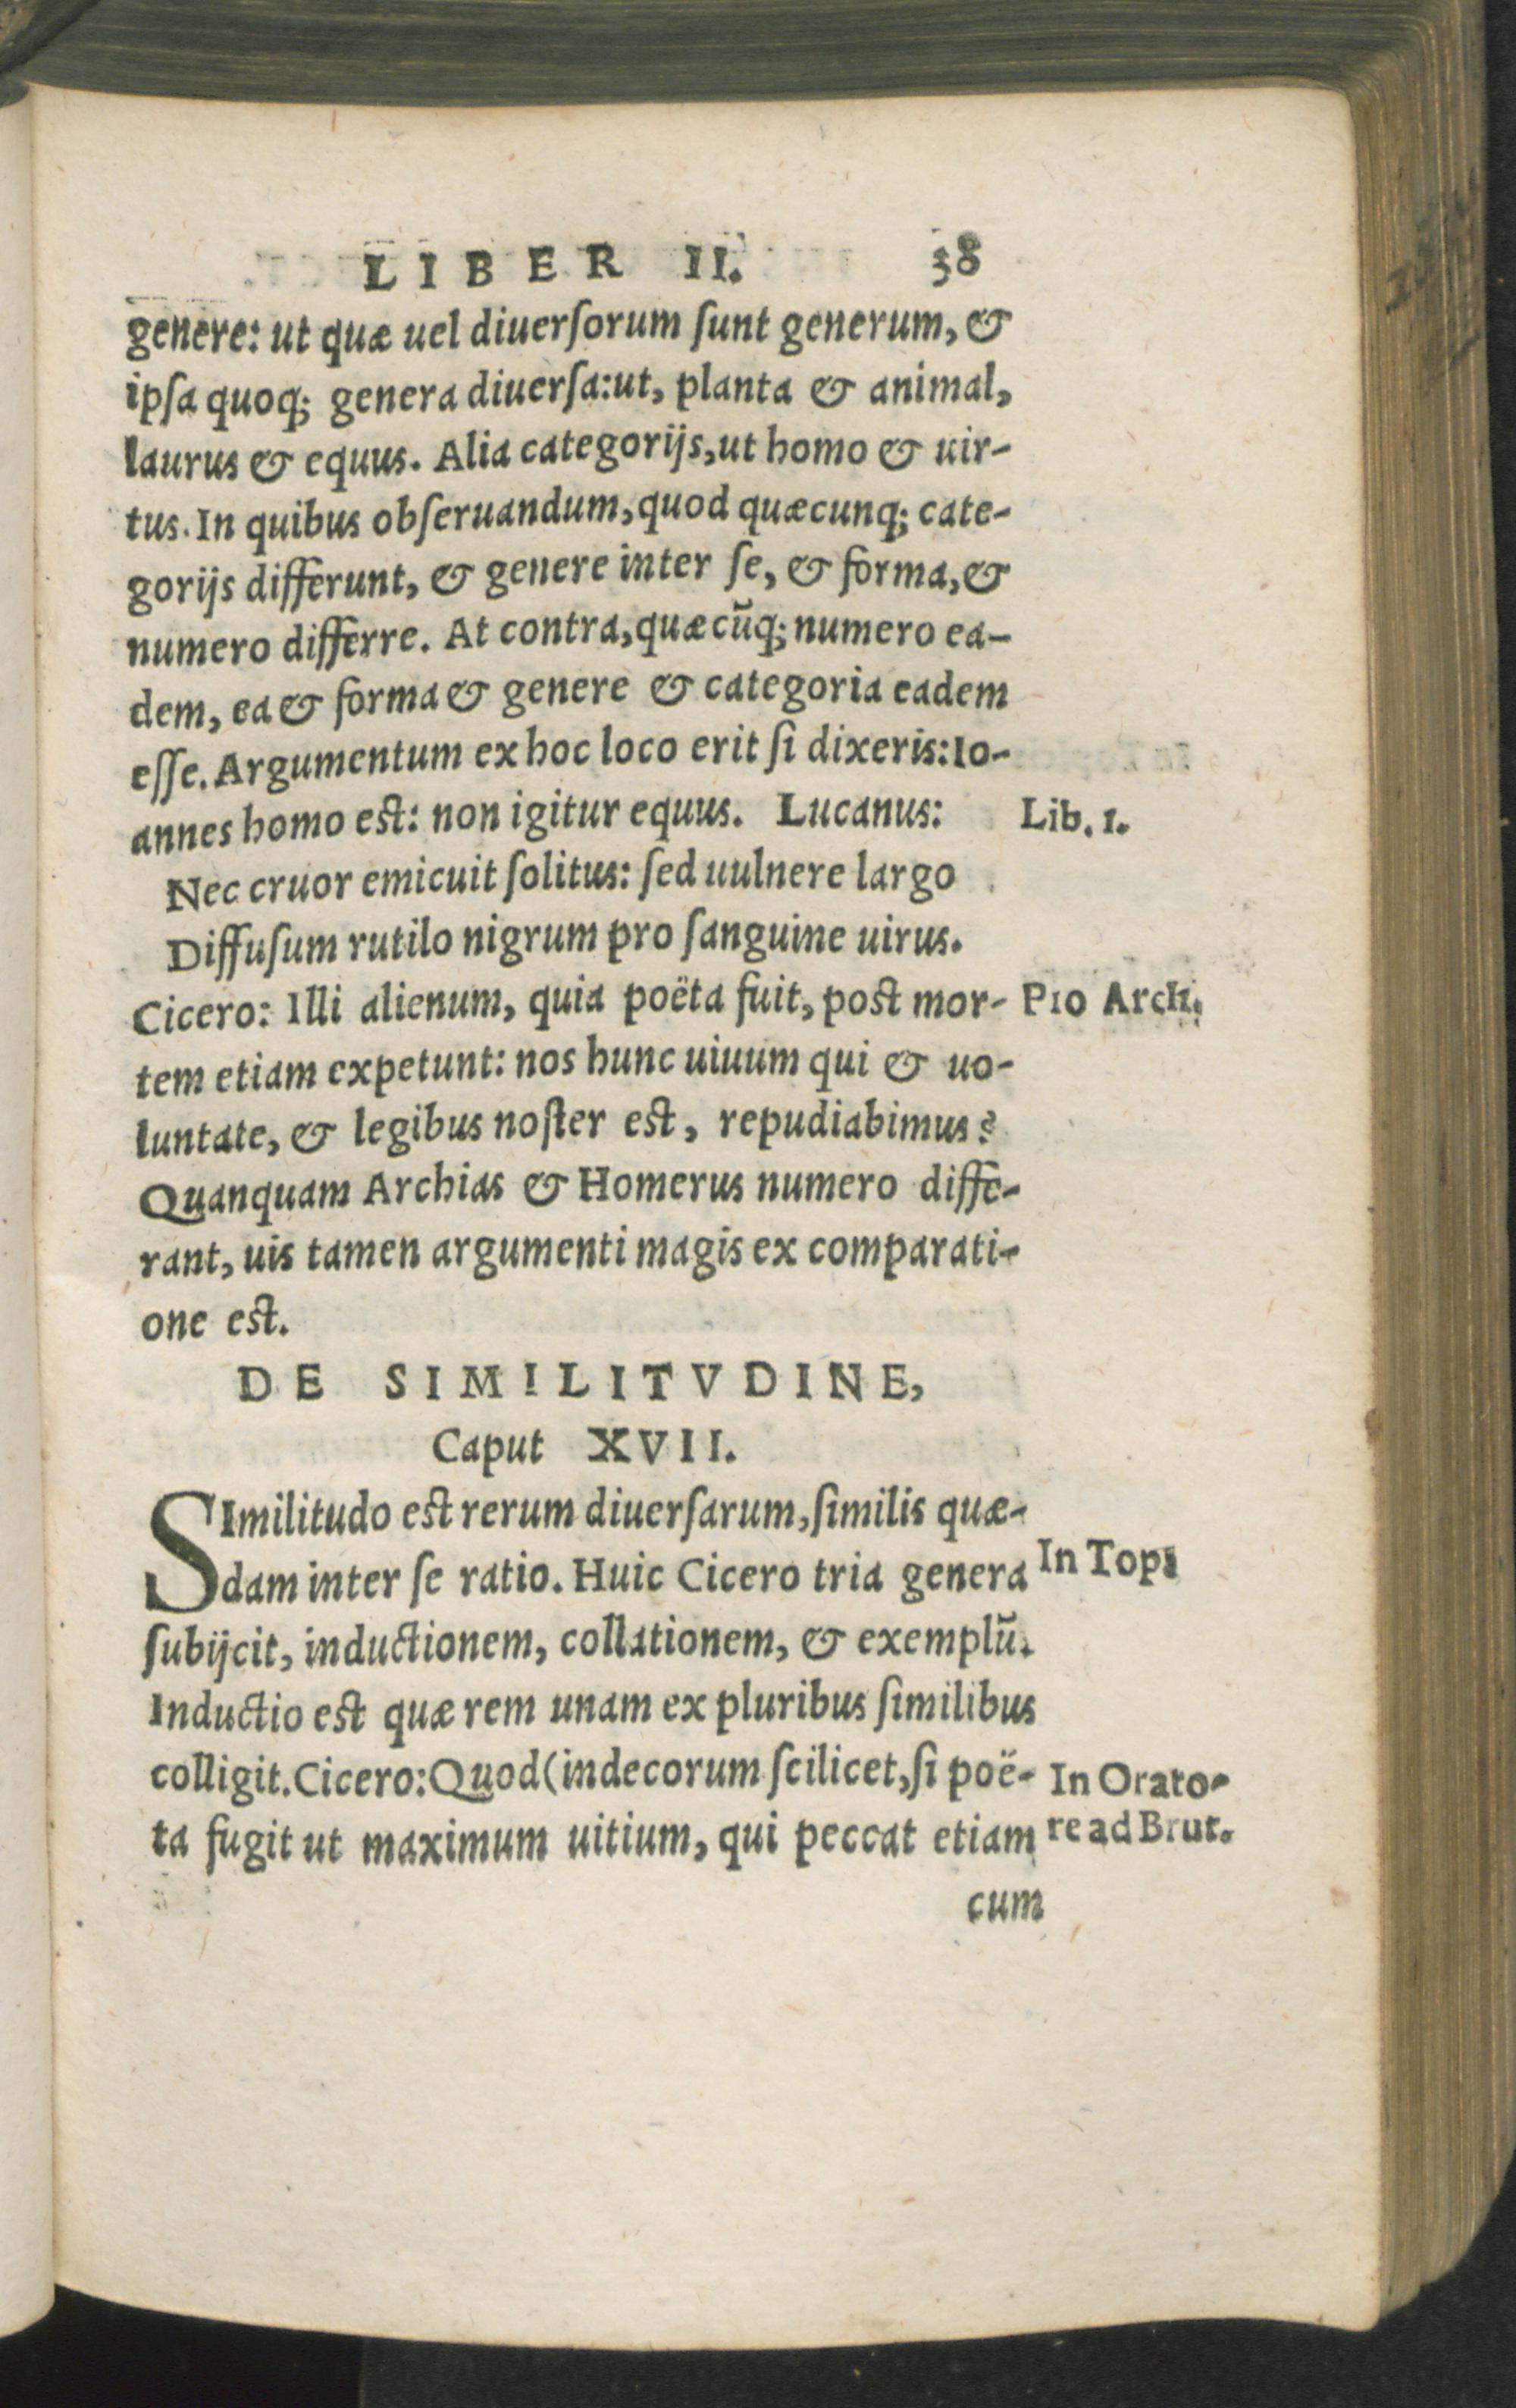 LIBER II. 38
genere: ut quæ uel diuerſorum ſunt generum, &
ipſa quoq; genera diuerſa: ut, planta & animal,
laurus & equus. Alia categorijs, ut homo & uir-
tus. In quibus obſeruandum, quod quæcunq; cate-
gorijs differunt, & genere inter ſe, & forma, &
numero differre. At contra, quæcūq; numero ea-
dem, ea & forma & genere & categoria eadem
eſſe. Argumentum ex hoc loco erit ſi dixeris: Io-
annes homo est: non igitur equus. Lucanus: Lib. 1.
Nec cruor emicuit ſolitus: ſed uulnere largo
Diffuſum rutilo nigrum pro ſanguine uirus.
Cicero: Illi alienum, quia poëta fuit, post mor- Pro Arch.
tem etiam expetunt: nos hunc uiuum qui & uo-
luntate, & legibus noſter est, repudiabimus?
Quanquam Archias & Homerus numero diffe-
rant, uis tamen argumenti magis ex comparati-
one est.
DE SIMILITVDINE,
Caput XVII.
SImilitudo est rerum diuerſarum, ſimilis quæ-
dam inter ſe ratio. Huic Cicero tria genera In Top.
ſubijcit, inductionem, collationem, & exemplū.
Inductio est quæ rem unam ex pluribus ſimilibus
colligit. Cicero: Quod (indecorum ſcilicet, ſi poë- In Orato-
ta fugit ut maximum uitium, qui peccat etiam re ad Brut.
cum